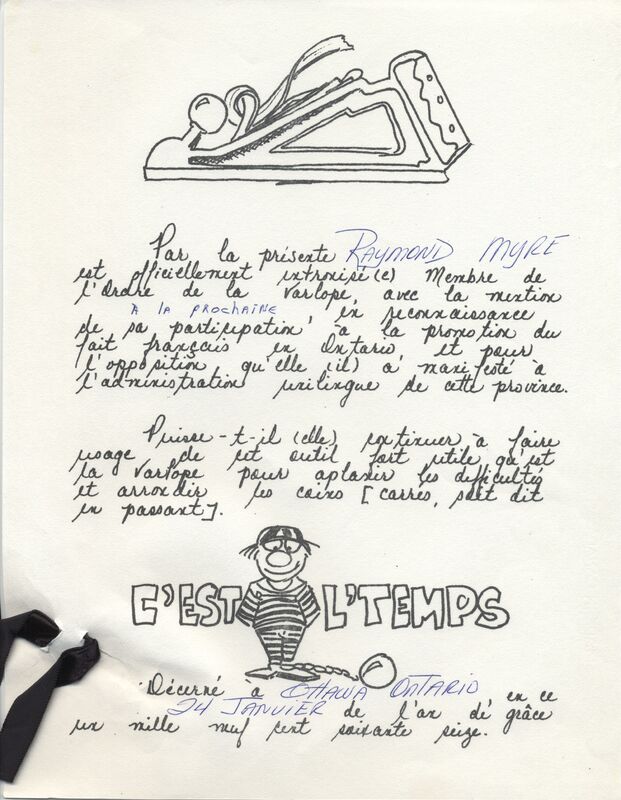 Par la présente RAYMOND MYRE
est officiellement intronisé(e) Membre de
l'Ordre de la Varlope, avec la mention
A LA PROCHAINE, en reconnaissance
de sa participation à la promotion du
fait français en Ontario et pour
l'opposition qu'elle (il) a manifesté à
l'administration unilingue de cette province.
Puisse-t-il (elle) continuer à faire
usage de cet outil fort utile qu'est
la varlope pour aplanir les difficultés
et arrondir les coins [carrés, soit dit
en passant].
C'EST L'TEMPS
Décerné à OTTAWA ONTARIO en ce
24 JANVIER de l'an de grâce
un mille neuf cent soixante seize.